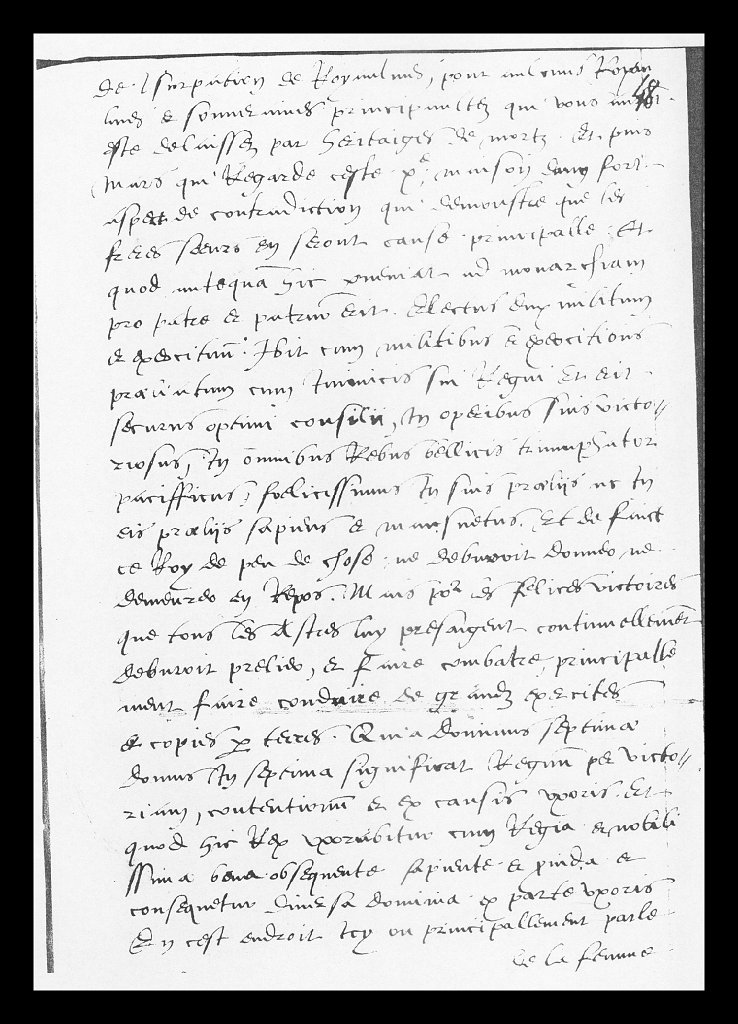 de l'surpation de Royaulmes, pour aulcuns Royau
lmes et souveraines principaultez qui vous
48
este delaissez par heritaiges de mortz. Et puis
Mars qui Regarde ceste xe maison dung fort
aspect de contradiction qui demonstre que les
freres seurs en seront cause principalle. Et
quod antequã hic veniat ad monarchiam
pro patre et patruo erit Electus dux militum
et exercituũ. Ibit cum militibus et exercitibus
pravatum cum inimicis sui Regni Et erit
securus optimi consilii, In operibus suis victo-
riosus, In omnibus Rebus bellicis triumphator
paciffícus, foelicissimus In suis præliis ac In
eis præliis sapiens et mansuetus. Et de faict
ce Roy de peu de chose ne debvroit donner ne
demeurer en Repos. Mais por les felices victoires
que tous les Astres luy presaigent continuellement
debvroit prelier, et faire combatre principalle
ment faire conduire de grandz exercites
et copies p terres. Quia dominus septimæ
domus In septima significat Regnum per victo-
riam, contentionũ et ex causis uxoris. Et
quod hic Rex uxorabitur cum Regia et nobili
ssima bene obsequente sapiente et et
consequetur diversa dominia ex parte uxoris
En cest endroit Icy ou principallement parle
de la femme